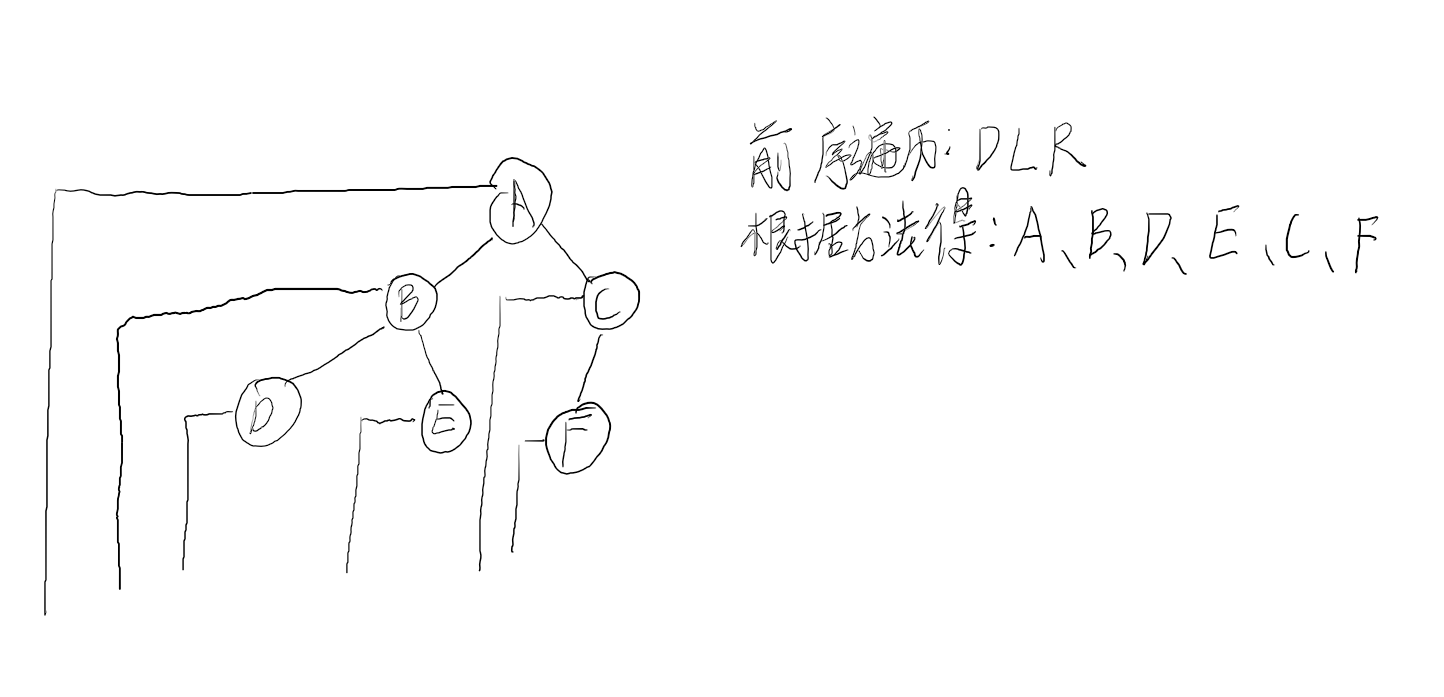 A
B
C
D
E
F
前序遍历: DLR
根据方法得: A、B、D、E、C、F